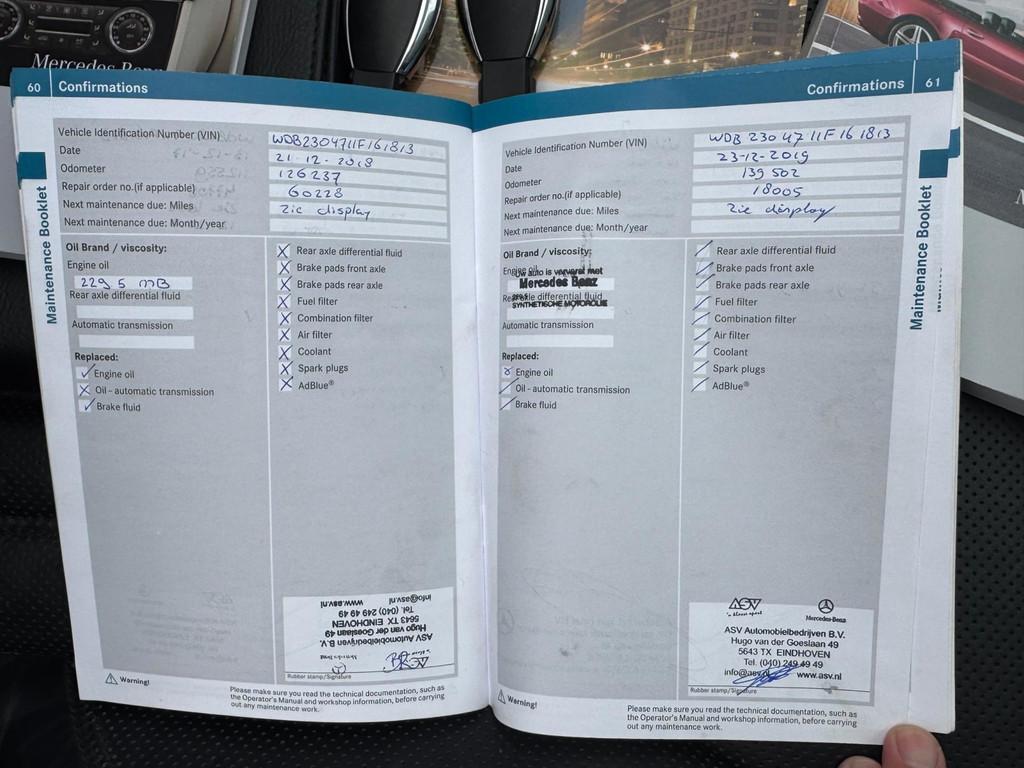 Mercedes-Benz
60 Confirmations
Vehicle Identification Number (VIN) WDB2304711F161813
Date 21-12-2018
Odometer 126237
Repair order no.(if applicable) 60228
Next maintenance due: Miles Zie display
Next maintenance due: Month/year
Maintenance Booklet
Oil Brand / viscosity:
Engine oil
229 5 MB
Rear axle differential fluid
Automatic transmission
Replaced:
Engine oil
Oil - automatic transmission
Brake fluid
Rear axle differential fluid
Brake pads front axle
Brake pads rear axle
Fuel filter
Combination filter
Air filter
Coolant
Spark plugs
AdBlue®
ASV Automobielbedrijven B.V.
Hugo van der Goeslaan 49
5643 TX EINDHOVEN
Tel. (040) 249 49 49
info@asv.nl www.asv.nl
Rubber stamp/Signature
Warning!
Please make sure you read the technical documentation, such as
the Operator's Manual and workshop information, before carrying
out any maintenance work.
Confirmations 61
Vehicle Identification Number (VIN) WDB2304711F161813
Date 23-12-2019
Odometer 139502
Repair order no.(if applicable) 18005
Next maintenance due: Miles Zie display
Next maintenance due: Month/year
Maintenance Booklet
Oil Brand / viscosity:
Engine oil
Uw auto is ververst met
Mercedes Benz
Rear axle differential fluid
SYNTHETISCHE MOTOROLIE
Automatic transmission
Replaced:
Engine oil
Oil - automatic transmission
Brake fluid
Rear axle differential fluid
Brake pads front axle
Brake pads rear axle
Fuel filter
Combination filter
Air filter
Coolant
Spark plugs
AdBlue®
ASV
Mercedes-Benz
ASV Automobielbedrijven B.V.
Hugo van der Goeslaan 49
5643 TX EINDHOVEN
Tel. (040) 249 49 49
info@asv.nl www.asv.nl
Rubber stamp/Signature
Warning!
Please make sure you read the technical documentation, such as
the Operator's Manual and workshop information, before carrying
out any maintenance work.